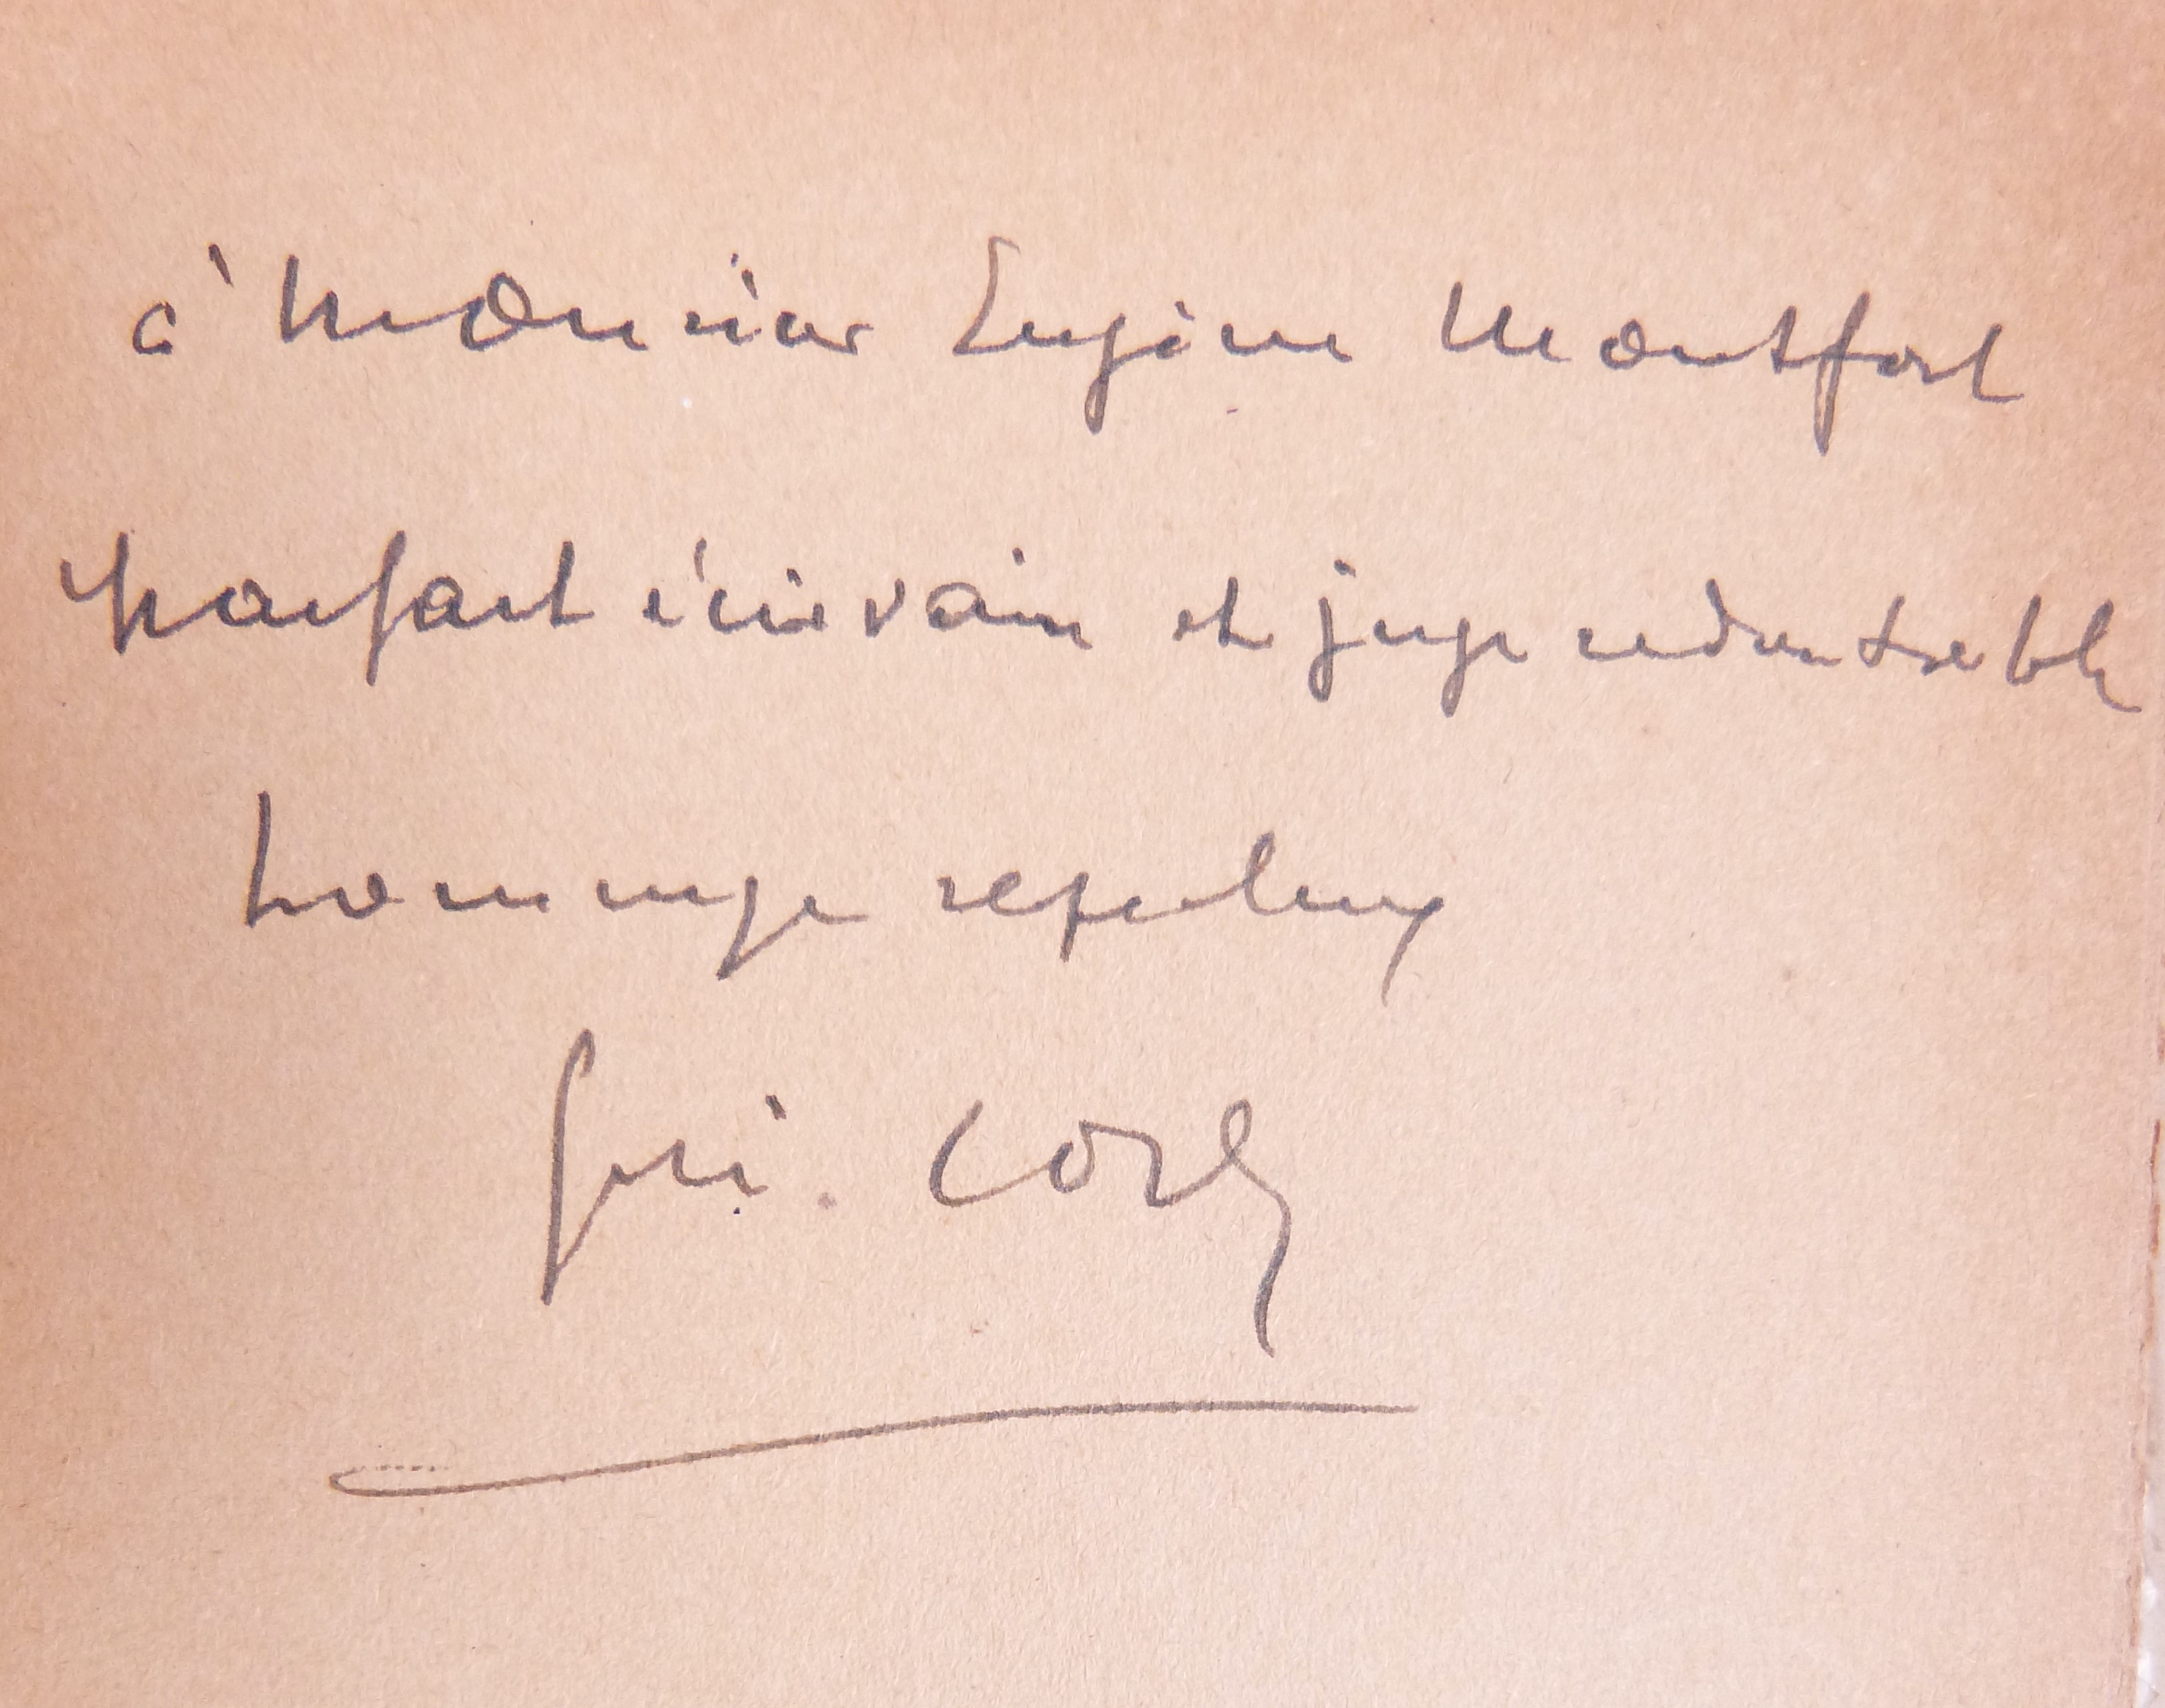 à Monsieur Eugène Montfort
parfait écrivain et juge redoutable
hommage respectueux